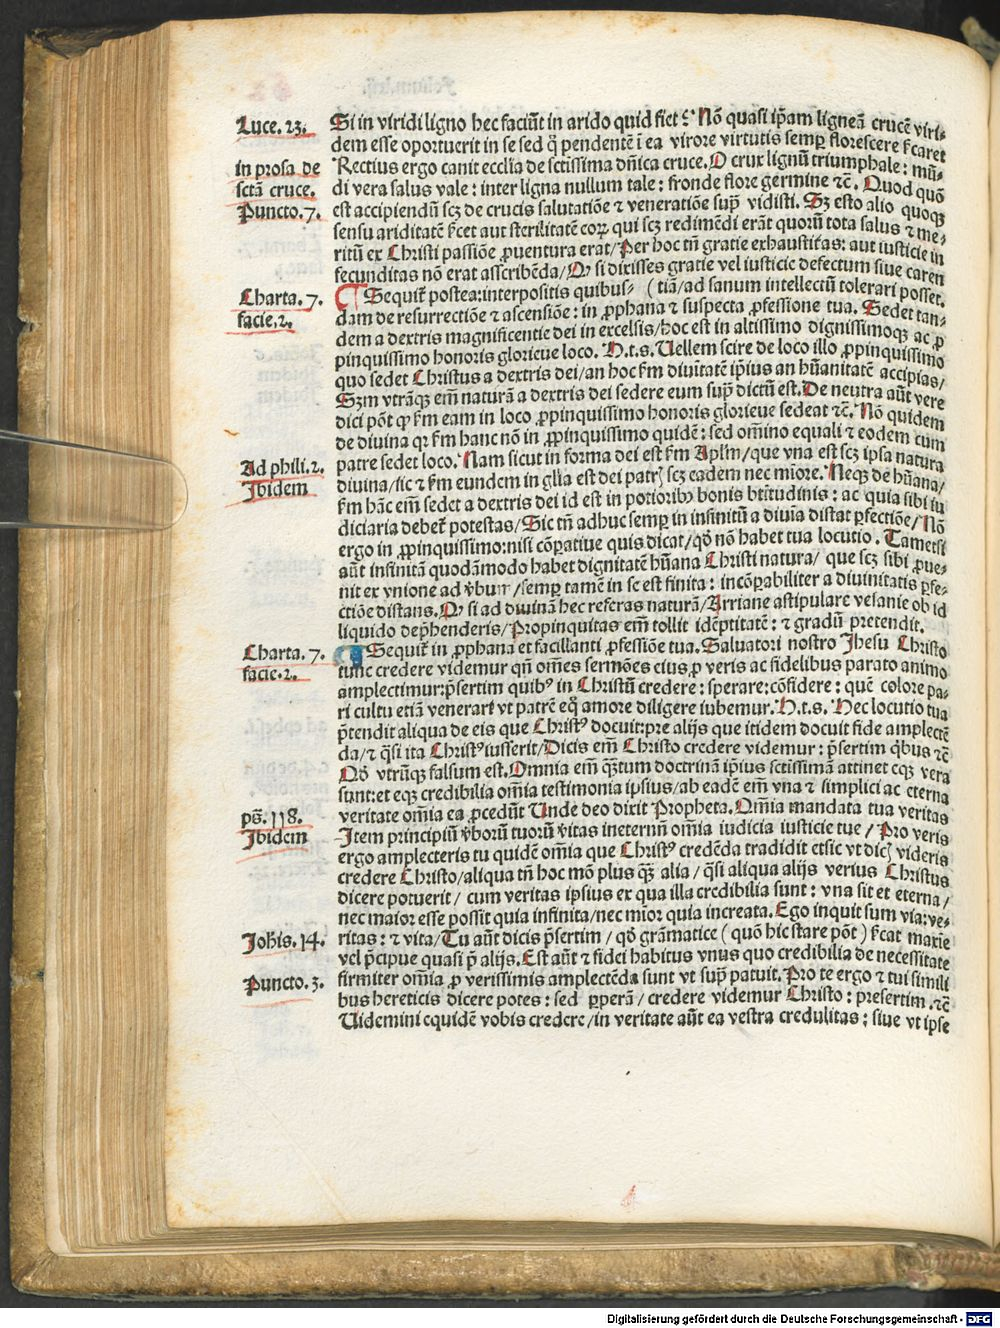 Luce. 23.
in prosa de
sctā cruce.
Puncto. 7.
Charta. 7.
facie. 2.
Ad phili. 2.
Ibidem
Charta. 7.
facie. 2.
ps̄. 118.
Ibidem
Johis. 14.
Puncto. 3.
Si in viridi ligno hec faciūt in arido quid fiet? Nō quasi ip̄am ligneā crucē viri-
dem esse oportuerit in se sed q̄ pendentē ī ea virore virtutis semp̱ florescere ſcaret
Rectius ergo canit ecclīa de sctissima dn̄ica cruce. O crux lignū triumphale: mū-
di vera salus vale: inter ligna nullum tale: fronde flore germine ⁊c̄. Quod quō
est accipiendū scꝫ de crucis salutatiōe ⁊ veneratiōe sup̱ vidisti. Sꝫ esto alio quoqꝫ
sensu ariditatē ſcet aut sterilitatē coꝝ qui scꝫ redimēdi erāt quorū tota salus ⁊ me-
ritū ex Christi passiōe ꝓuentura erat/Per hoc tn̄ gratie exhaustitas: aut iusticie in
fecunditas nō erat asscribēda/Qꝫ si dixisses gratie vel iusticie defectum siue caren
¶ Sequit̄ postea: interpositis quibus- (tiā/ad sanum intellectū tolerari posset.
dam de resurrectiōe ⁊ ascensiōe: in ꝓphana ⁊ suspecta ꝓfessione tua. Sedet tan-
dem a dextris magnificentie dei in excelsis/hoc est in altissimo dignissimoqꝫ ac ꝓ
pinquissimo honoris glorieue loco. H.t.S. Vellem scire de loco illo ꝓpinquissimo
quo sedet Christus a dextris dei/an hoc ſm diuitatē ip̄ius an hūanitatē accipias/
Sꝫm vtrāqꝫ em̄ naturā a dextris dei sedere eum sup̱ dictū est. De neutra aūt vere
dici pōt qꝫ ſm eam in loco ꝓpinquissimo honoris glorieue sedeat ⁊c̄. Nō quidem
de diuina qꝛ ſm hanc nō in ꝓpinquissimo quidē: sed om̄ino equali ⁊ eodem cum
patre sedet loco. Nam sicut in forma dei est ſm Aplm/que vna est scꝫ ipsa natura
diuina/sic ⁊ ſm eundem in gl̄ia est dei patrꝭ scꝫ eadem nec mīore. Neqꝫ de hūana/
ſm hāc em̄ sedet a dextris dei id est in potioribꝰ bonis bt̄itudinis: ac quia sibi iu
diciaria debet̄ potestas/Sic tn̄ adhuc semp̱ in infinitū a diuīa distat p̱fectiōe/Nō
ergo in ꝓpinquissimo: nisi cōp̱atiue quis dicat/qd̄ nō habet tua locutio. Tametsi
aūt infinitā quodāmodo habet dignitatē hūana Christi natura/ que scꝫ sibi ꝓue-
nit ex vnione ad v̄bum/semp̱ tamē in se est finita: incōp̱abiliter a diuinitatis p̱fe-
ctiōe distans. Qꝫ si ad diuinā hec referas naturā/Arriane astipulare vesanie ob id
liquido dep̄henderis/Propinquitas em̄ tollit idēptitatē: ⁊ gradū pretendit.
¶ Sequit̄ in ꝓphana et facillanti ꝓfessiōe tua. Saluatori nostro Jhesu Christo
tunc credere videmur qn̄ omēs sermōes eius ꝓ veris ac fidelibus parato animo
amplectimur: p̄sertim quibꝰ in Christū credere: sperare: cōfidere: quē colore pa-
ri cultu etiā venerari vt patrē eq̄ amore diligere iubemur. H.t.S. Hec locutio tua
p̄tendit aliqua de eis que Christꝰ docuit: pre alijs que itidem docuit fide amplectē
da/⁊ q̄si ita Christꝰ iusserit/Dicis em̄ Christo credere videmur: p̄sertim q̄bus ⁊c̄
Qd̄ vtrūqꝫ falsum est. Omnia em̄ q̄ꝫtum doctrinā ip̄ius sctissimā attinet eqꝫ vera
sunt: et eqꝫ credibilia om̄ia testimonia ipsius/ab eadē em̄ vna ⁊ simplici ac eterna
veritate om̄ia ea ꝓcedūt Unde deo dixit Propheta. Om̄ia mandata tua veritas
Item principiū v̄borū tuorū v̄itas ineternū om̄ia iudicia iusticie tue/ Pro veris
ergo amplecteris tu quidē om̄ia que Christꝰ credēda tradidit etsic vt dicꝭ videris
credere Christo/aliqua tn̄ hoc mō plus q̄ꝫ alia/ q̄si aliqua alijs verius Christus
dicere potuerit/ cum veritas ipsius ex qua illa credibilia sunt: vna sit et eterna/
nec maior esse possit quia infinita/nec mior quia increata. Ego inquit sum via: ve-
ritas: ⁊ vita/Tu aūt dicis p̄sertim/ qd̄ grāmatice (quō hic stare pōt) ſcat maxie
vel p̄cipue quasi p̄ alijs. Est aūt ⁊ fidei habitus vnus quo credibilia de necessitate
firmiter om̄ia ꝓ verissimis amplectēda sunt vt sup̱ patuit. Pro te ergo ⁊ tui simili
bus hereticis dicere potes: sed p̱perā/ credere videmur Christo: presertim. ⁊c̄
Videmini equidē vobis credere/in veritate aūt ea vestra credulitas: siue vt ip̄se
Digitalisierung gefördert durch die Deutsche Forschungsgemeinschaft - DFG